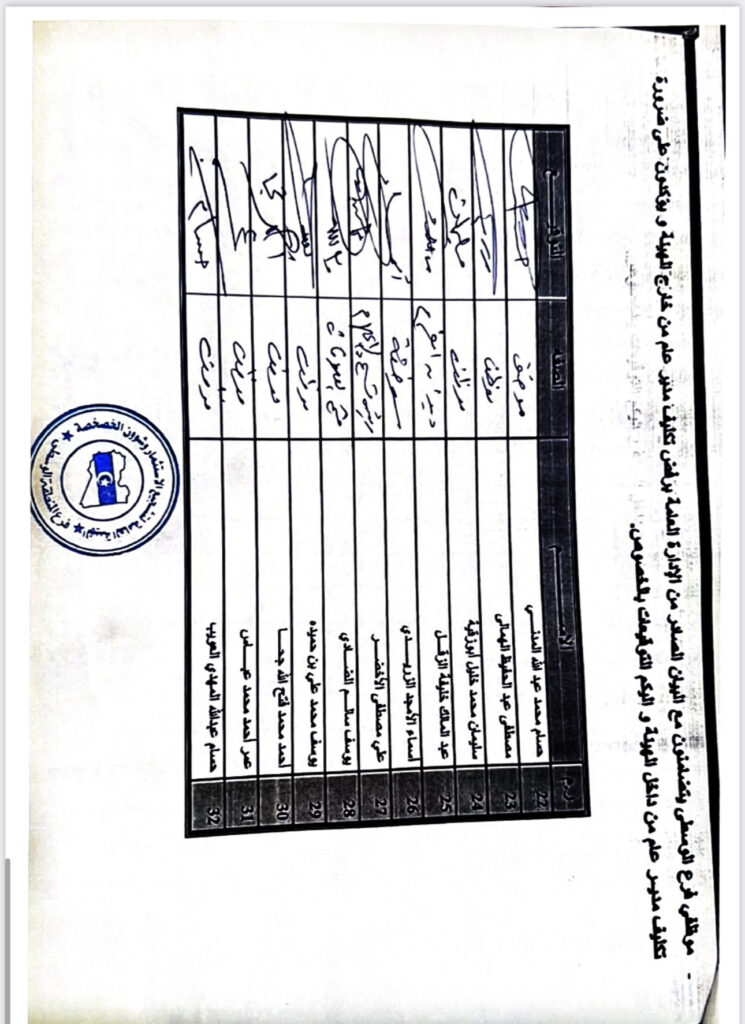 - موظفي فرع الوسطى يتضامنون مع البيان الصادر من الإدارة العامة برفض تكليف مدير عام من خارج الهيئة و يؤكدون على ضرورة
تكليف مدير عام من داخل الهيئة و اليكم التوقيعات بالخصوص.
ر.م الاسم الصفة التوقيع
22 حسام محمد عبد الله المدني موظف
23 مصطفى عبد الحفيظ الهمالي موظف
24 سليمان محمد خليل أبورقية موظف
25 عبد المالك خليفة الزقل
26 أسماء الأمجد الزريدي موظفة
27 علي مصطفى الأخضر
28 يوسف سالم الضاوي
29 يوسف محمد علي بن حميده موظف
30 أحمد محمد فتح الله جحا موظف
31 عمر أحمد محمد عباس موظف
32 حسام عبدالله المهدي العريب موظف
الهيئة العامة لتشجيع الاستثمار وشؤون الخصخصة
فرع المنطقة الوسطى